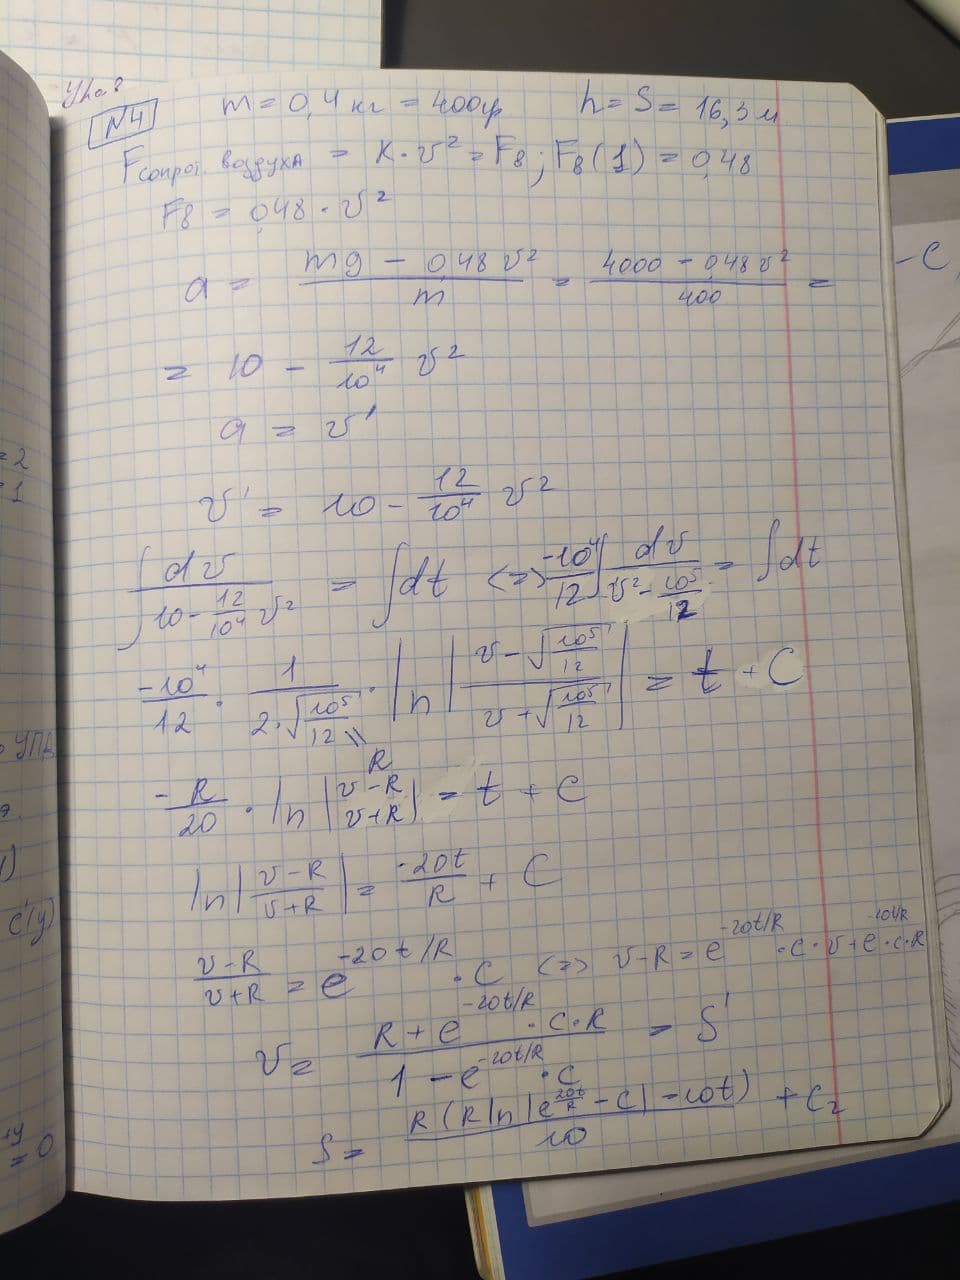 №4 m = 0,4 кг = 400гр h = S = 16,3 м
Fсопрот. воздуха = K · v² = Fв ; Fв(1) = 0,48
Fв = 0,48 · v²
a = (mg − 0,48 v²)/m = (4000 − 0,48 v²)/400 =
= 10 − 12/10⁴ v²
a = v'
v' = 10 − 12/10⁴ v²
∫ dv/(10 − 12/10⁴ v²) = ∫dt <=> −10⁴/12 ∫ dv/(v² − 10⁵/12) = ∫dt
−10⁴/12 · 1/(2·√(10⁵/12)) · ln|(v − √(10⁵/12))/(v + √(10⁵/12))| = t + C
R
−R/20 · ln|(v−R)/(v+R)| = t + C
ln|(v−R)/(v+R)| = −20t/R + C
(v−R)/(v+R) = e^(−20t/R) · C <=> v−R = e^(−20t/R) · C · v + e · C · R
v = (R + e^(−20t/R) · C · R)/(1 − e^(−20t/R) · C) = S'
S = R(R ln|e^(20t/R) − C| − 10t)/10 + C₂
− C
= 2
= 1
C'(y)
= 0